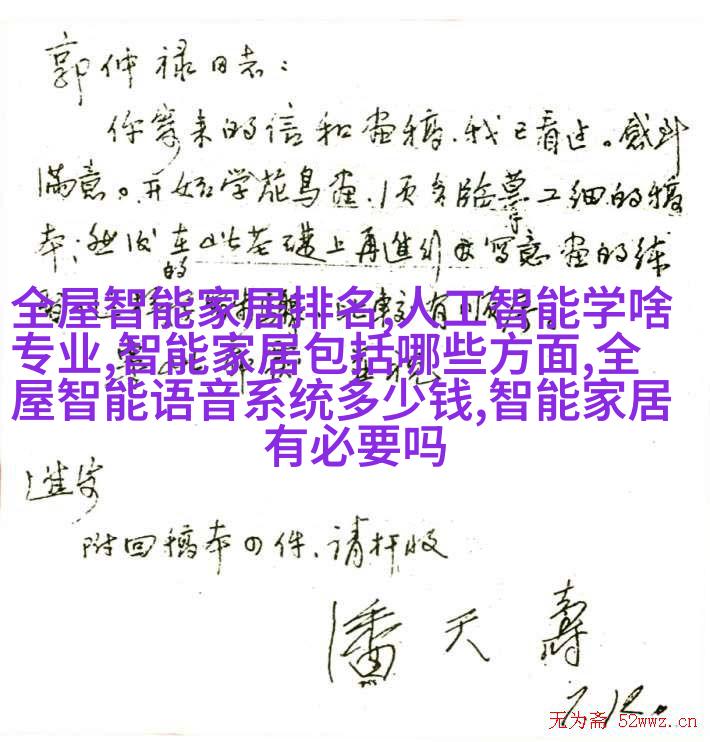 郭仲禄同志：
你寄来的信和画稿，我已看过。感到
满意。开始学花鸟画，须多临摹工细的稿
本；然后在此基础上再进行写意画的练
的
全屋智能家居排名,人工智能学啥
专业,智能家居包括哪些方面,全
屋智能语音系统多少钱,智能家居
有必要吗
进安
附回稿本四件、请检收
潘天寿
7.12.
无为斋 52wwz.cn